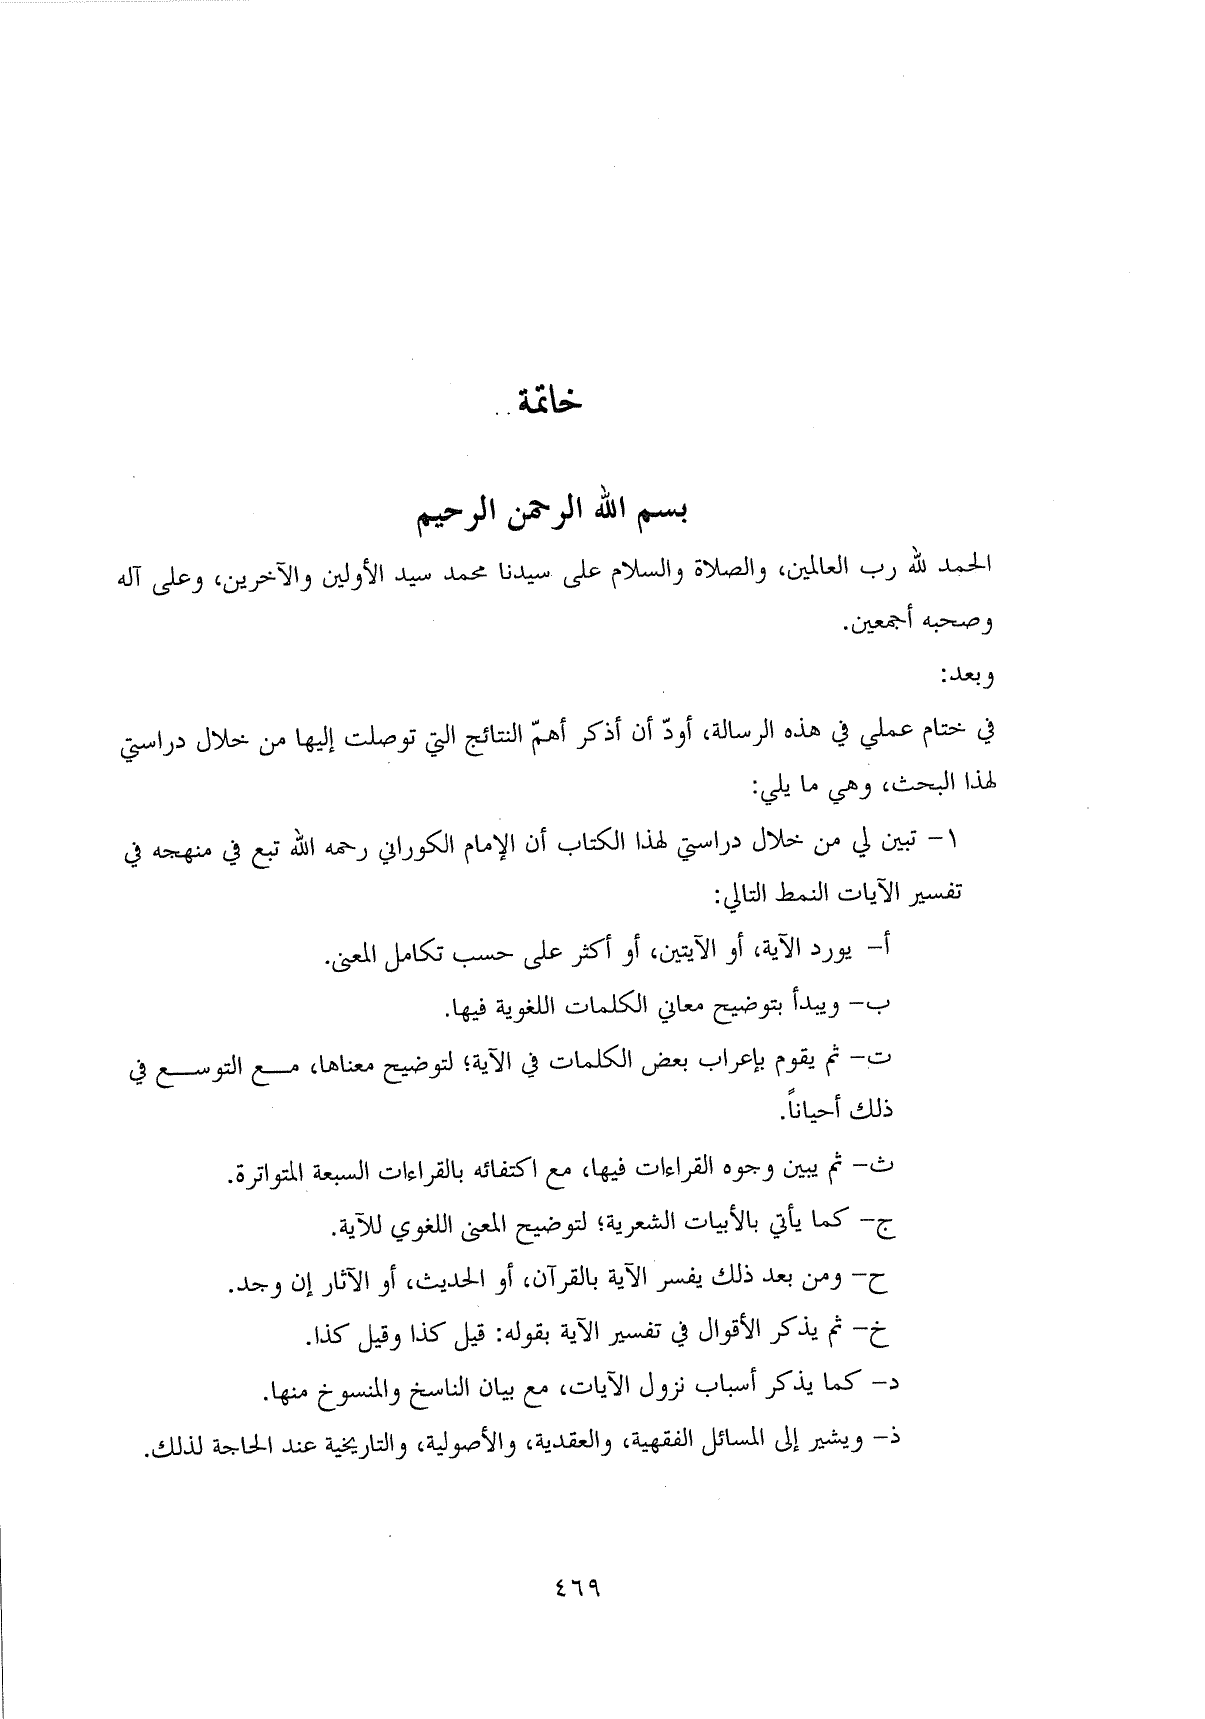 خاتمة ..
بسم الله الرحمن الرحيم
الحمد لله رب العالمين، والصلاة والسلام على سيدنا محمد سيد الأولين والآخرين، وعلى آله
وصحبه أجمعين.
وبعد:
في ختام عملي في هذه الرسالة، أودّ أن أذكر أهمّ النتائج التي توصلت إليها من خلال دراستي
لهذا البحث، وهي ما يلي:
١- تبين لي من خلال دراستي لهذا الكتاب أن الإمام الكوراني رحمه الله تبع في منهجه في
تفسير الآيات النمط التالي:
أ- يورد الآية، أو الآيتين، أو أكثر على حسب تكامل المعنى.
ب- ويبدأ بتوضيح معاني الكلمات اللغوية فيها.
ت- ثم يقوم بإعراب بعض الكلمات في الآية؛ لتوضيح معناها، مـــع التوســـع في
ذلك أحياناً.
ث- ثم يبين وجوه القراءات فيها، مع اكتفائه بالقراءات السبعة المتواترة.
ج- كما يأتي بالأبيات الشعرية؛ لتوضيح المعنى اللغوي للآية.
ح- ومن بعد ذلك يفسر الآية بالقرآن، أو الحديث، أو الآثار إن وجد.
خ- ثم يذكر الأقوال في تفسير الآية بقوله: قيل كذا وقيل كذا.
د- كما يذكر أسباب نزول الآيات، مع بيان الناسخ والمنسوخ منها.
ذ- ويشير إلى المسائل الفقهية، والعقدية، والأصولية، والتاريخية عند الحاجة لذلك.
٤٦٩